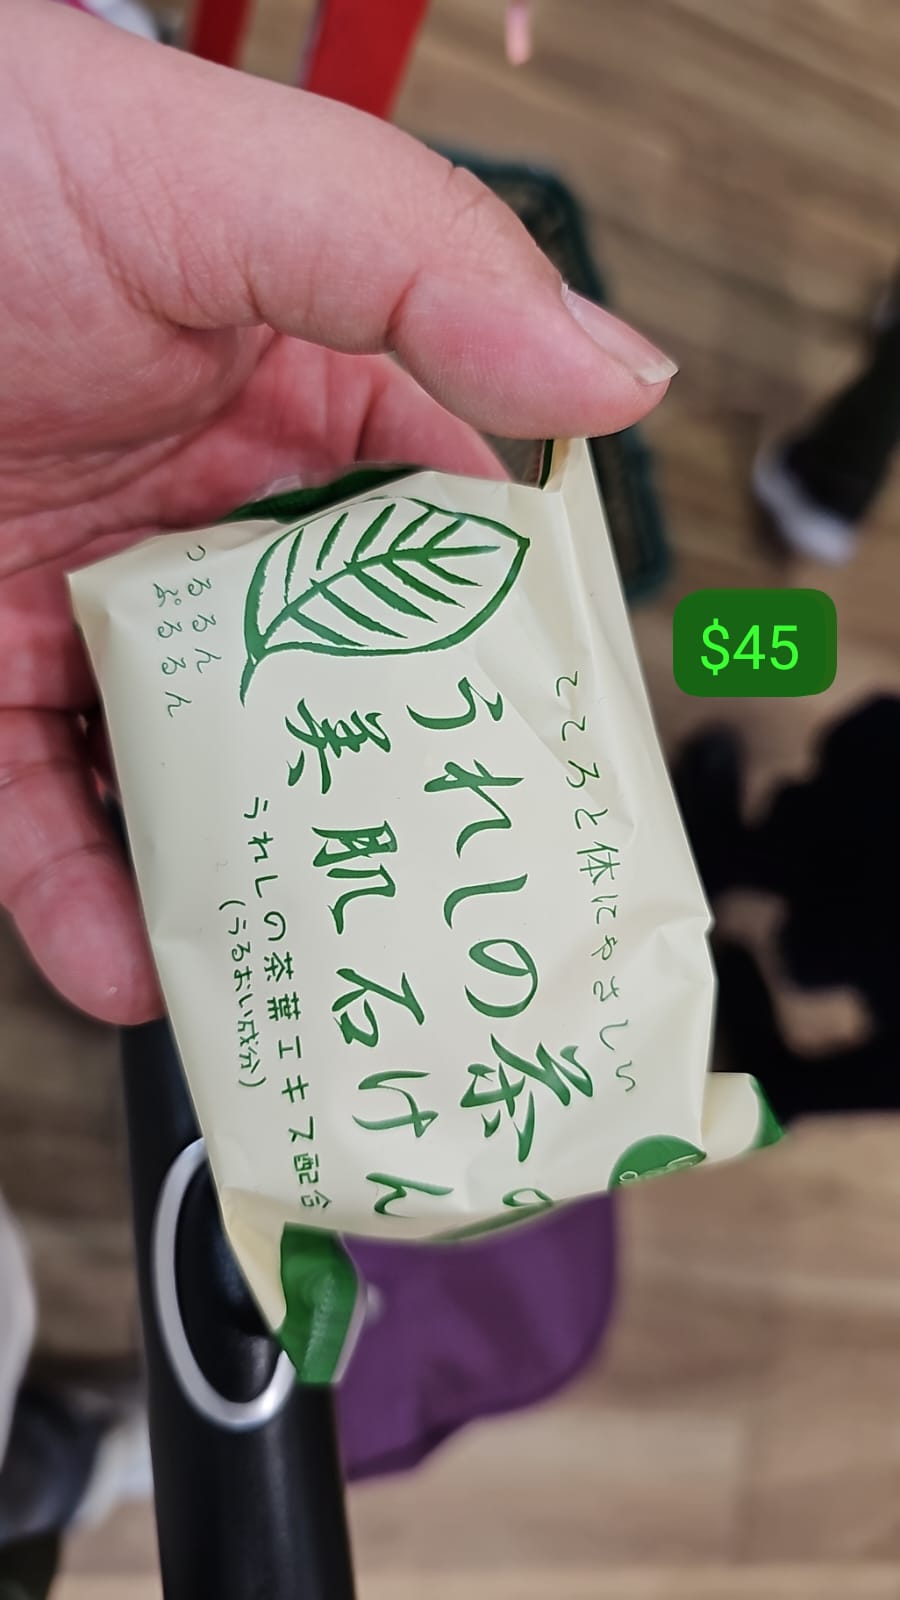 こころと体にやさしい
うれしの茶の
美肌石けん
うれしの茶葉エキス配合
(うるおい成分)
つるるん
ぷるるん
$45